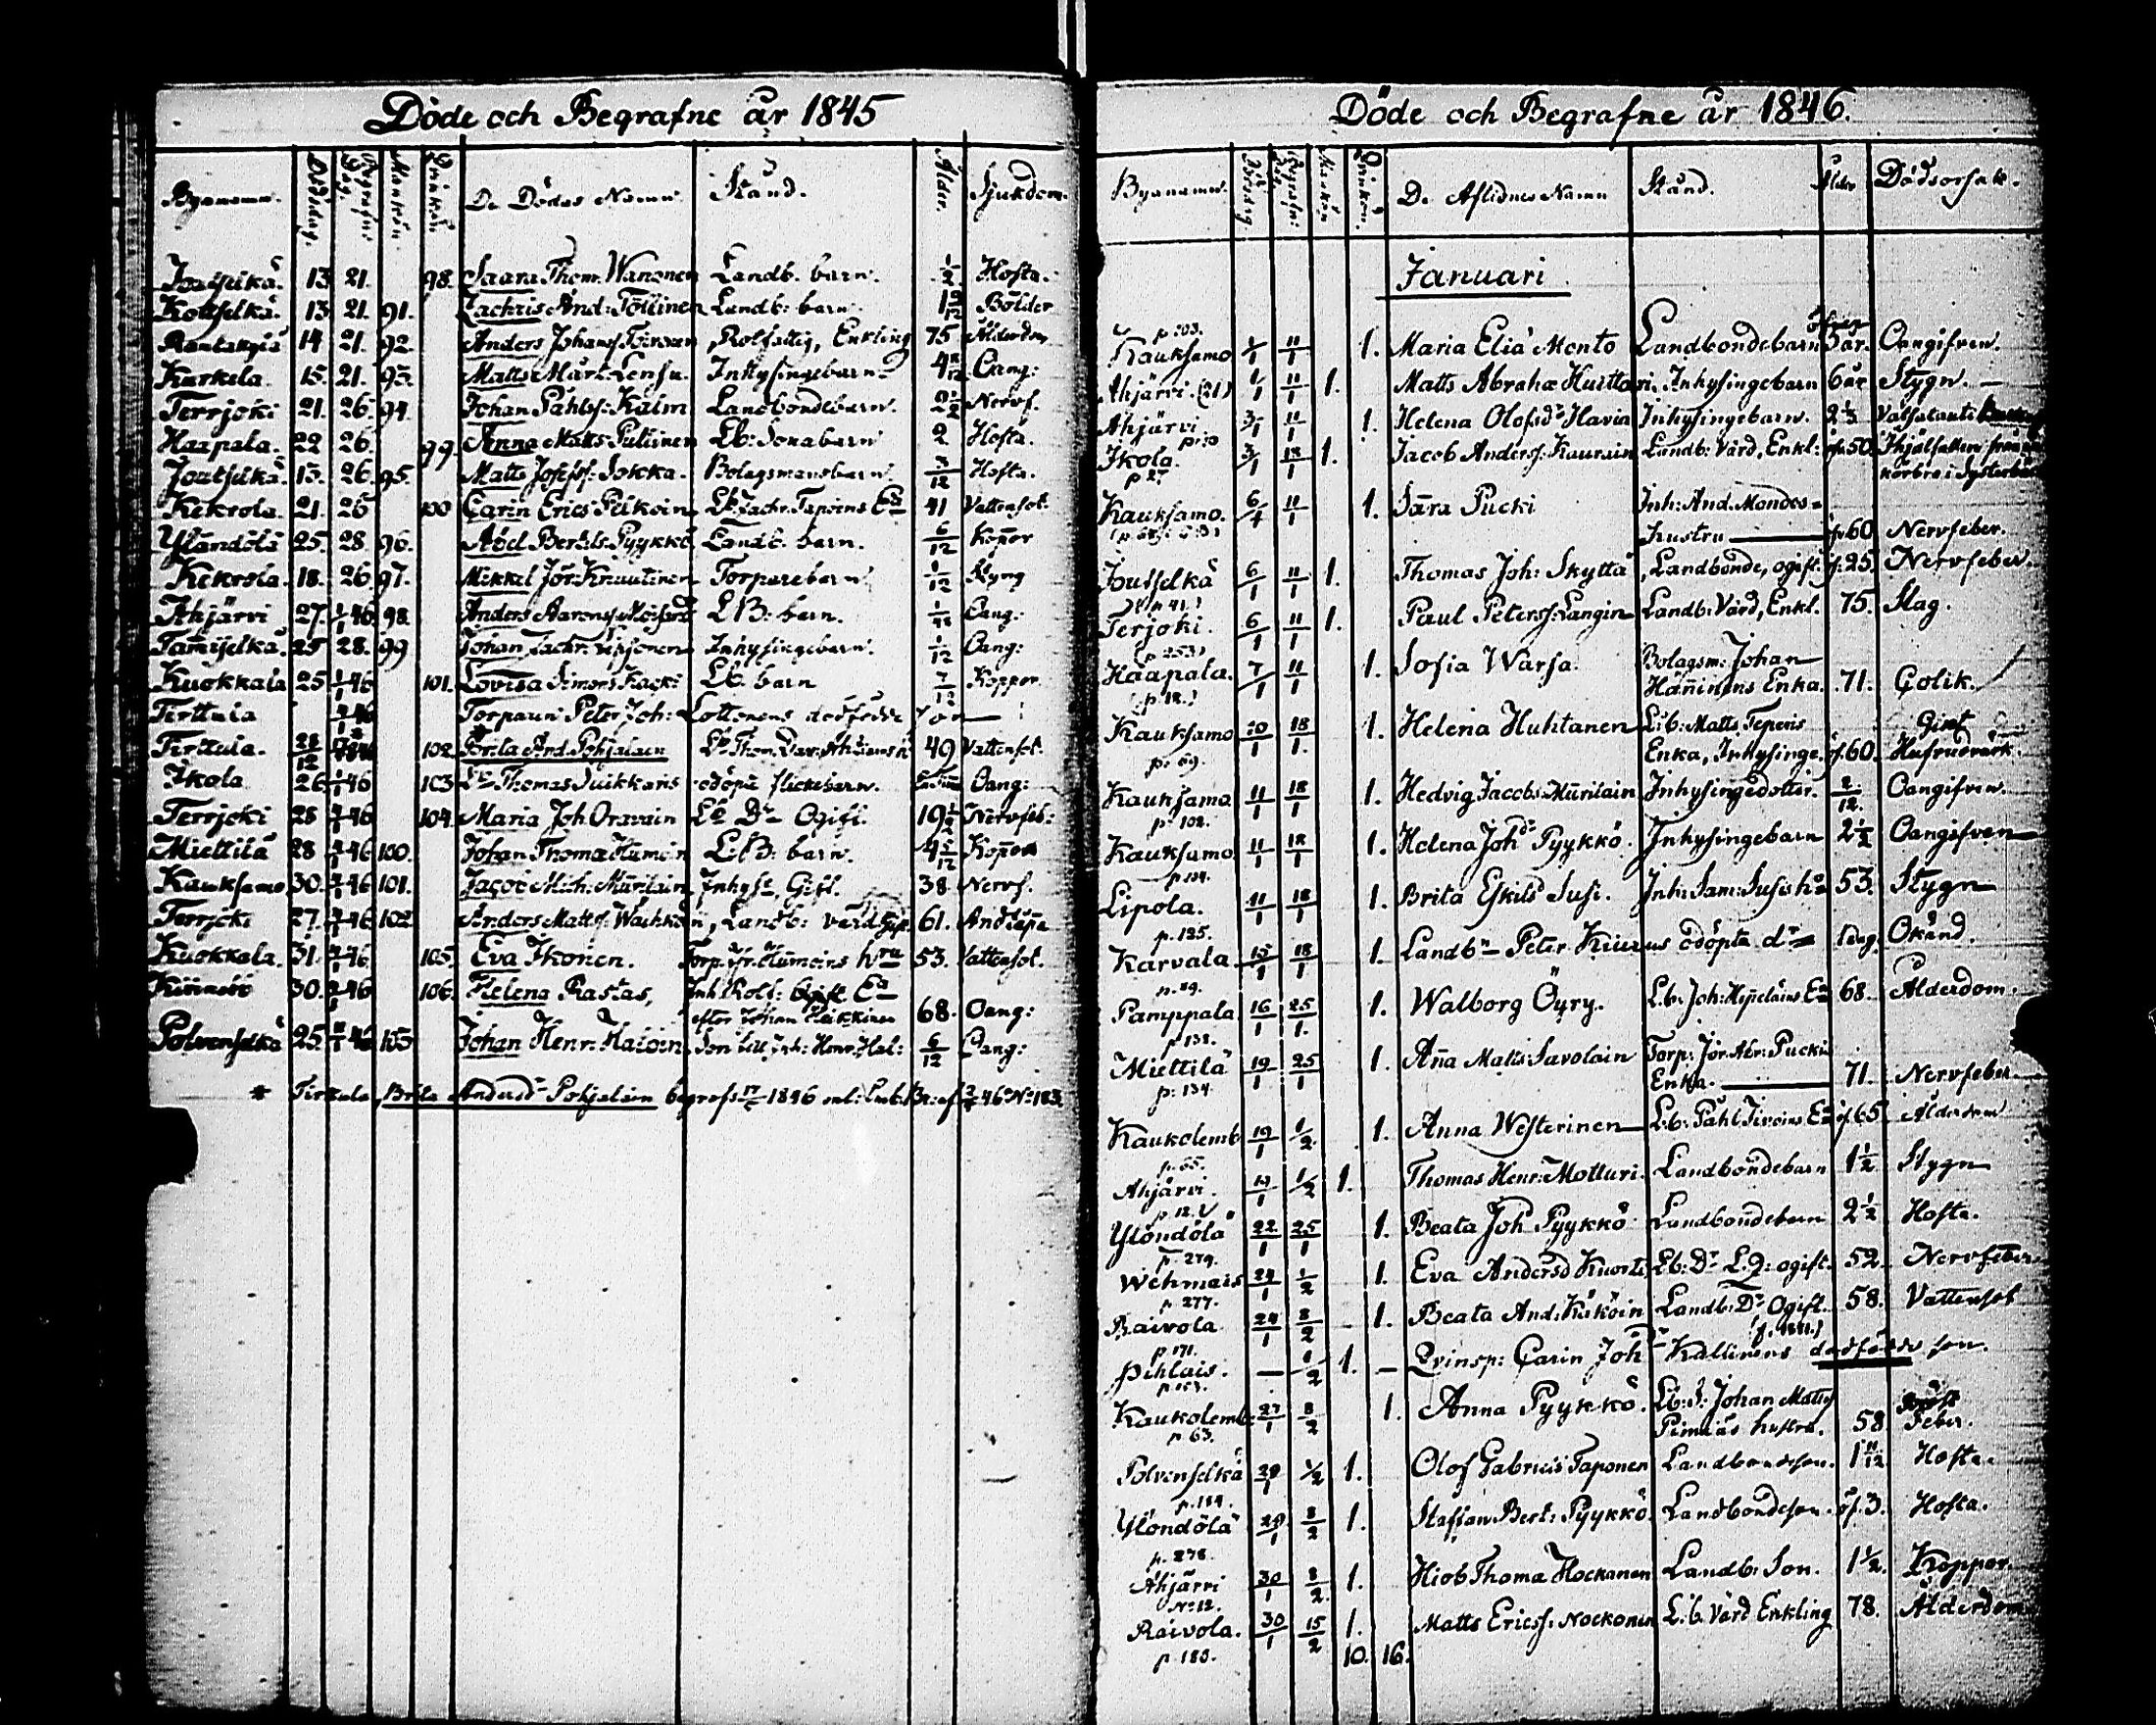 Döde och Begrafne år 1845
Bynamn. Dödsdag. Begrafn: dag. Mankön. Qvinkön. De Dödas Namn. Stånd. Ålder. Sjukdom.
Joutselkä. 13 21. 98. Saara Thom. Wanonen Landb. barn. 1/2 Hosta.
Kottselkä. 13 21. 91. Zachris And: Töllinen Landb: barn. 1 9/12 Bölder
14 21. 92. Anders Johans: Toivoen, Rotfattig, Enkling 75 Ålderdom
Kurkela. 15. 21. 93. Matts Märt. Lensu. Inhysingebarn. Oang:
Terrjoki 21. 26. 94. Johan Påhlss: Kälm Landbondebarn. 2 1/2 Nervf.
Haapala. 22 26. 99. Anna Matts: Putsinen Lb: Sonabarn 2 Hosta.
Joutselkä. 13. 26. 95. Matts Josefss: Sokka. Bolagsmansbarn. 3/12 Hosta.
Kekrola. 21. 26 100 Carin Erics Pelkoin Lb. Zachr. Taponens Ea 41 Vattusot.
Ylöndölä 25. 28. 96. Abel Bertils. Pyykkö Landb. barn. 6/12 Koppor
Kekrola. 18. 26 97. Mikkel Jör: Knuutinen Torparebarn 1/12 Styng
Ahjärvi 27. 1/1 46. 98. Anders Aaronss: L.B: barn. Oang:
Tamiselkä. 25 28. 99 Johan Zachr. Inhysingebarn. 1/12 Oang:
Kuokkala 25 1/1 46 101. Lovisa Simons Kacki Lb. barn 7/12 Koppor.
Tirttula Torparen Peter Joh: Lottonens dödfödde son
Tirttula. 28/12 102. Brita And. Pohjalain Lb Thom. Dav: 49 Vattusot.
Ikola 26 1/1 46 103 Lb Thomas Suikkans odöpta flickebarn. Oang:
Terrjoki 28 46 104. Maria Joh. Oravain Lb Dr Ogift. 19 1/2 Nervfeb:
Miettilä 28 46 100. Johan Thomæ Hümöin L:B: barn. Koppor
Kauksamo. 30. 46 101. Jacob Mich. Mürilain Inhyse, Gift. 38. Nervf.
Terrjoki 27. 46 102. Anders Mattss. Wächkön, Landb: värd Gift. 61. Andtäpa
Kuokkala. 31. 46 105. Eva Ikonen. Torp. Jr. Hümöins hru 53. Vattusot.
30. 46 106. Helena Rastas, Inh. Rotf: Ogift Ea
efter Johan Heikkinen 68. Oang:
Polvenselkä 25. 46 103 Johan Henr: Haloin. Son till Inh: Henr. Hal: 6/12 Oang:
* Tirttula, Brita Andersdr Pohjalain begrafs 17/ 1846 enl: Emb. Br: af 46 No 183.
Döde och Begrafne år 1846.
Bynamn. Dödsdag. Begrafn: Mankön Qvinkön. De Aflidnes Namn Stånd. Ålder Dödsorsak.
Januari
p. 103.
Kauksamo 1/1 11/1 1. Maria Eliæ Monto Landbondebarn öfver 3 år. Oangifven.
Ahjärvi. (21) 1/1 11/1 1. Matts Abrahæ Huittori. Inhysingebarn 6 år Stygn.
Ahjärvi 3/1 11/1 1. Helena Olofsdr Havia Inhysingebarn. 2 1/3
Ikola. 3/1 18/1 1. Jacob Anderss: Kaurain Landb: Värd, Enkl: öfv. 50. Ihjälfallen från
p 27 körbro i Systerbäck
Kauksamo. 6/1 11/1 1. Sara Pucki Inh: And. Mondos
Hustru öfv 60 Nervfeber.
Joutselkä 6/1 11/1 1. Thomas Joh: Skyttä, Landbonde, ogift. öf. 25. Nervfeber.
(p 41.)
Terjoki. 6/1 11/1 1. Paul Peterss: Langin Landb: Värd, Enkl. 75. Slag.
(p 253)
Haapala. 7/1 11/1 1. Sofia Warsa. Bolagsm: Johan
(p 18.) Hänninens Enka. 71. Colik.
Kauksamo 10/1 18/1. 1. Helena Huhtanen L:b: Matts Teperis Gikt
p. 69. Enka, Inhysinge. öf. 60. Hufvudvärk.
Kauksamo 11/1 18/1 1. Hedvig Jacobs: Mürilain Inhysingedotter. 2/12. Oangifven.
p. 102.
Kauksamo 11/1 18/1 1. Helena Johdr Pyykkö. Inhysingebarn 2 1/2 Oangifven
p. 104.
Lipola. 11/1 18/1 1. Brita Eskils Susi. Inh: Sam: Susis hu 53. Stygn
p. 135.
Karvala 15/1 18/1 1. Landbn Peter Kiurus odöpta dr 1 dag. Okänd.
p. 89.
Pamppala 16/1 25/1. 1. Walborg Öyry. L.b: Joh: Hyyeläins Ea 68. Ålderdom.
p. 138.
Miettilä 19/1 25/1 1. Anna Matts: Savolain Torp: Jör. Abr: Puckis
p: 134. Enka. 71. Nervfeber.
Kaukolemb 19/1 1/2. 1. Anna Westerinen L:b: Påhl Tivoins Ea öf 65 Ålderdom
p. 65.
Ahjärvi. 19/1 1/2 1. Thomas Henr: Motturi. Landbondebarn 1 1/2 Stygn
p. 12.
Ylöndölä 22/1 25/1 1. Beata Joh Pyykkö Landbondebarn 2 1/2 Hosta.
p. 279.
Wehmais 24/1 1/2 1. Eva Andersd Kuorti Lb: Dr L.Q: ogift. 52. Nervfeber.
p. 277.
Raivola 24/1 8/2 1. Beata And: Käköin Landb: Dr Ogift. 58. Vattusot
p. 171.
Pihlais. — 1/2 1. — Qvinsp: Carin Johdr Kallinens dödfödde son.
Kaukolemb: 27/1 8/2 1. Anna Pyykkö. L:b: S: Johan Matts
p. 63. Pimiäs hustru. 58 Bröst Feber.
Polvenselkä 29/1 1/2 1. Olof Gabriels Taponen Landbondeson. 1 11/12 Hosta.
p. 184.
Ylöndölä 29/1 8/2 1. Staffan Bert: Pyykkö. Landbondeson. öf. 3. Hosta.
p. 278.
Ahjärvi 30/1 8/2 1. Hiob Thomæ Hockanen Landb: Son. 1 1/2. Koppor.
No 12.
Raivola. 30/1 15/2 1. Matts Ericss: Nockonen L:b. Värd Enkling 78. Ålderdom
p. 180. 10. 16.